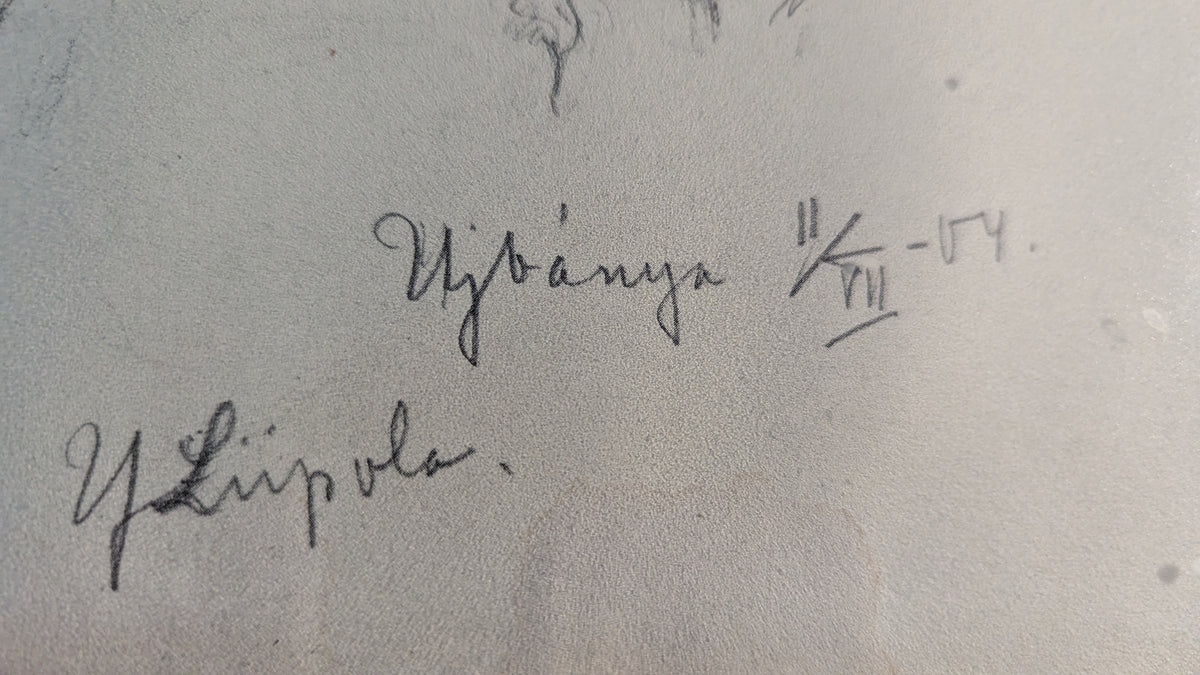 Ujbánya 11/VII -04.
Y Liipola.